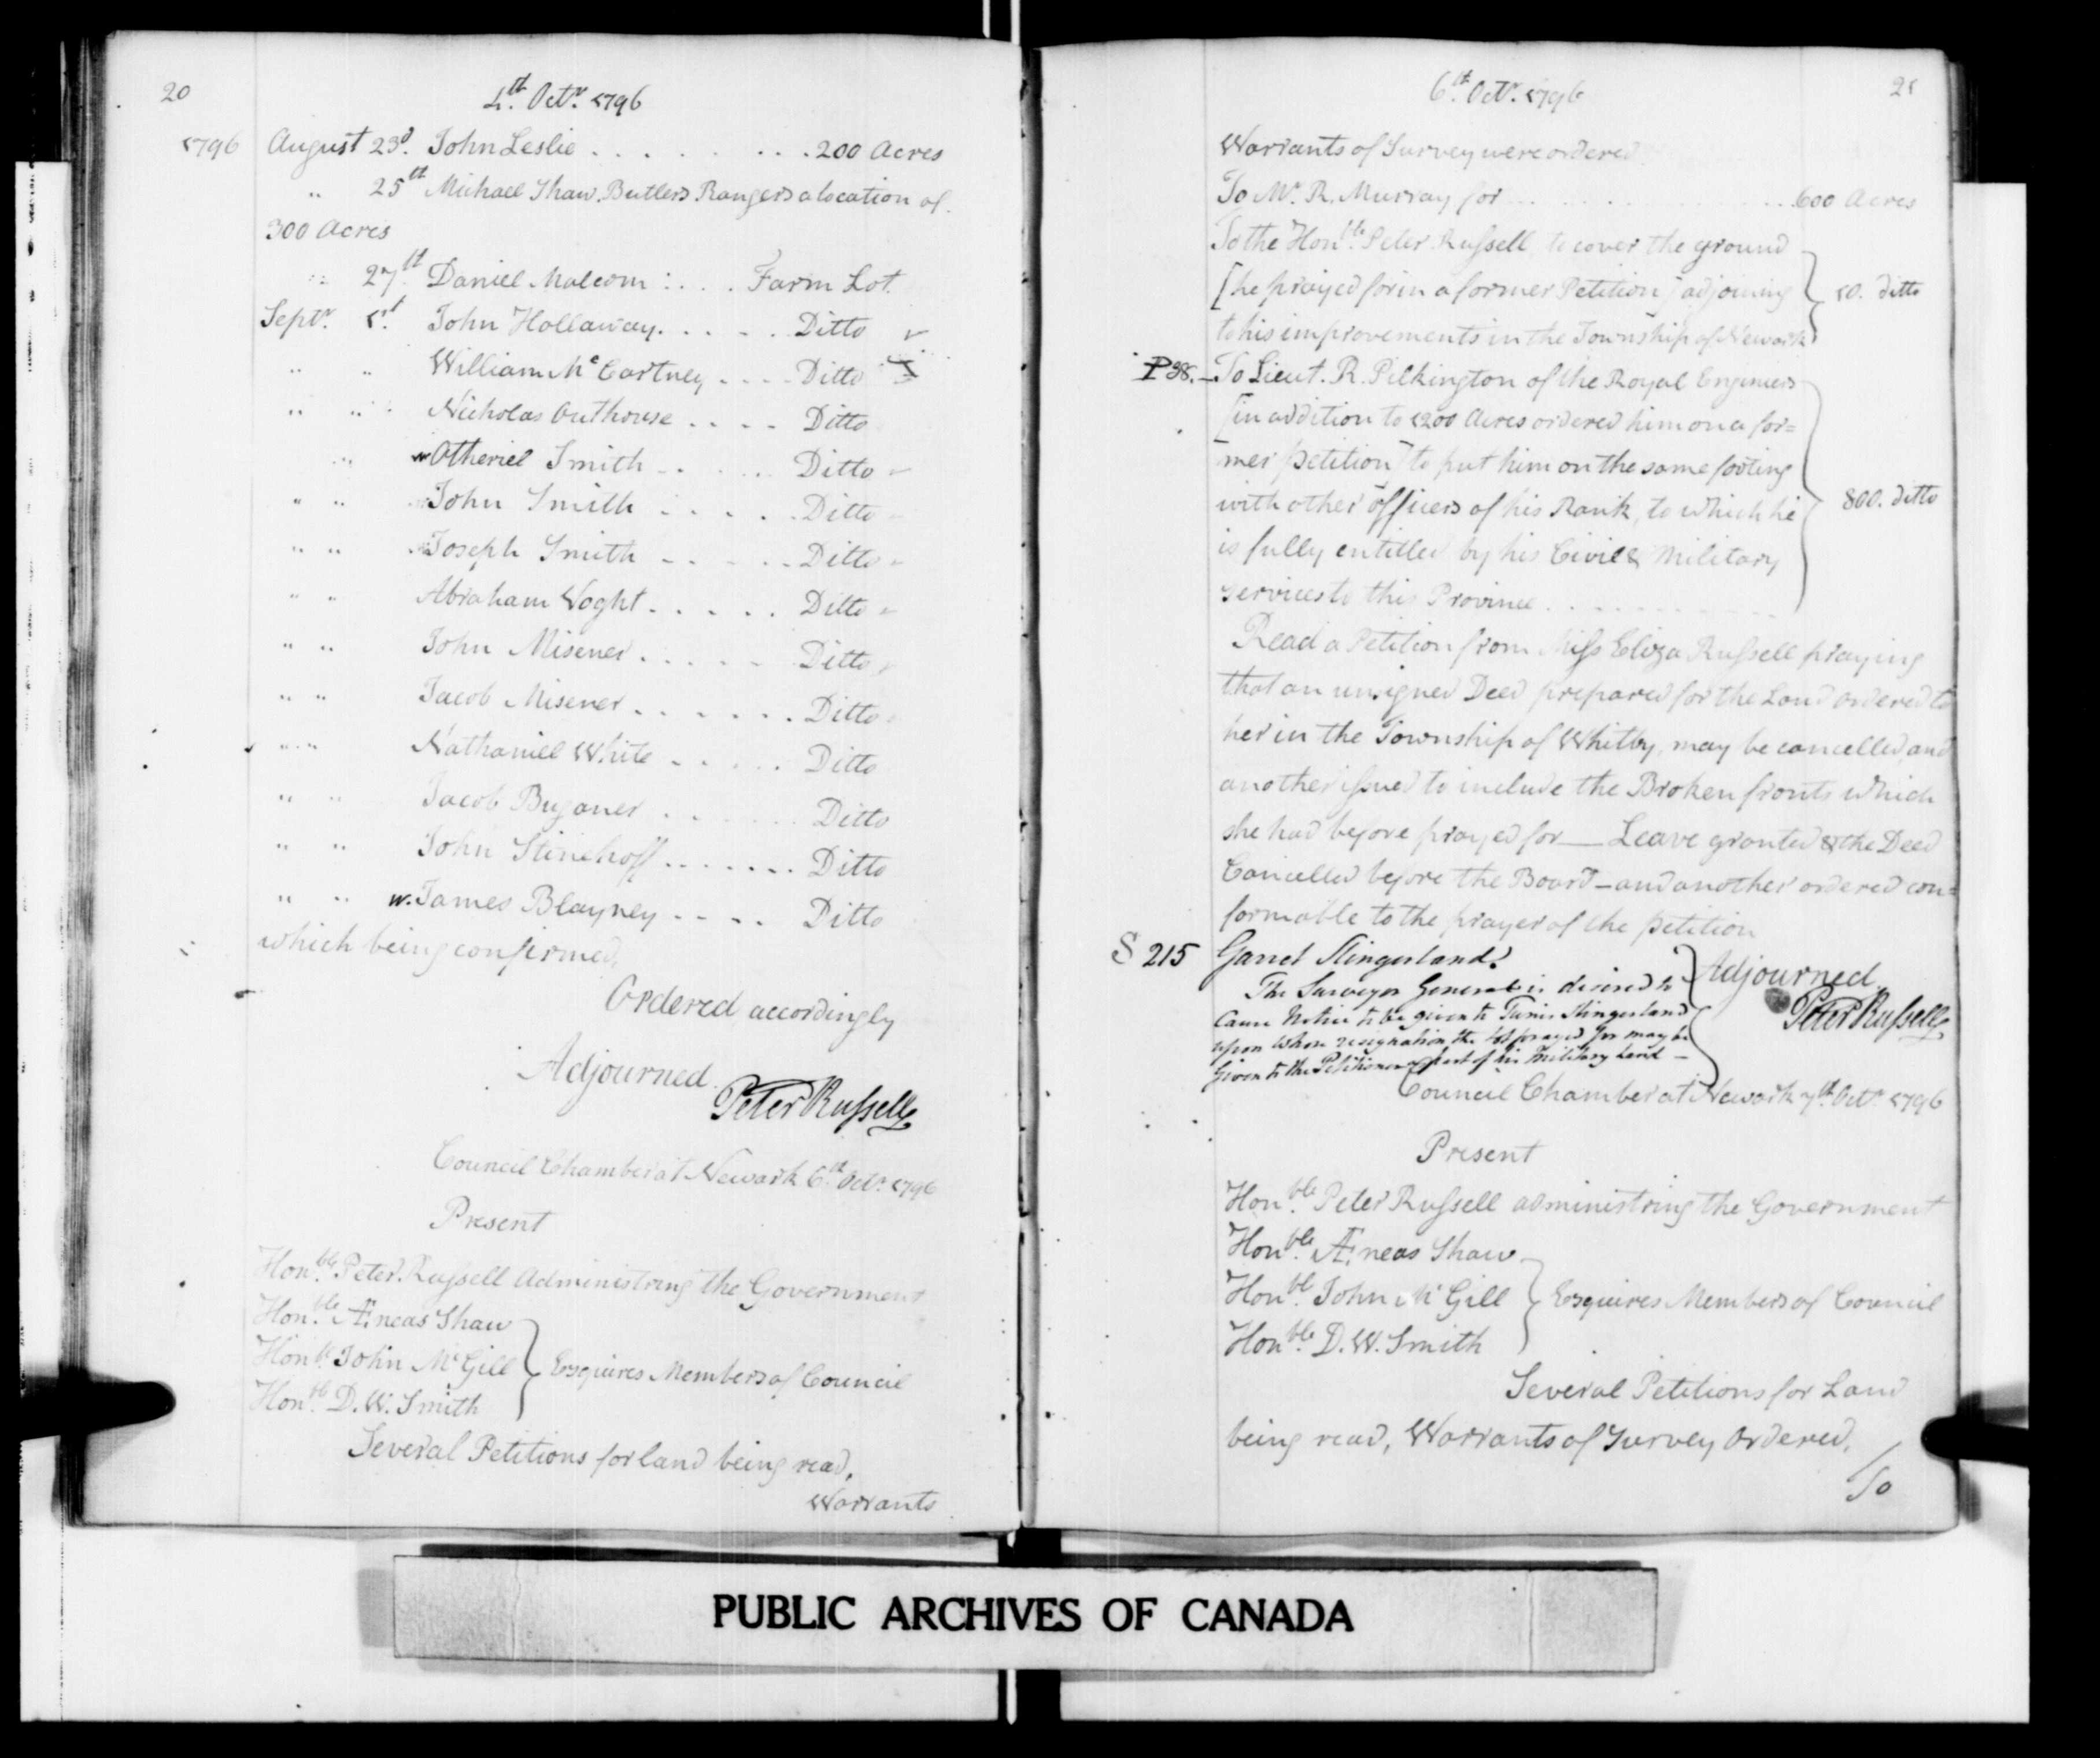 20
4th Octr. 1796
1796 August 23d. John Leslie . . . . . . . . 200 Acres
" 25th Michael Shaw. Butlers Rangers a location of
300 Acres
" 27th Daniel Malcom : . . . Farm Lot.
Septr. 1st John Hollaway. . . . . . Ditto
" " William McCartney . . . . Ditto
" " Nicholas Outhouse . . . . Ditto
" Otheriel Smith . . . . . Ditto
" " John Smith . . . . . Ditto
" " Joseph Smith . . . . . Ditto
" " Abraham Voght . . . . . Ditto
" " John Misener . . . . . Ditto
" " Jacob Misener . . . . . . Ditto
" " Nathaniel White . . . . . Ditto
" " Jacob Buganer . . . . . . Ditto
" " John Stinehoff . . . . . . . Ditto
" " w. James Blayney . . . . Ditto
which being confirmed,
Ordered accordingly
Adjourned.
Peter Russell
Council Chamber at Newark 6th Octr. 1796
Present
Honble. Peter Russell Administring the Government
Honble. Æneas Shaw
Honble. John McGill } Esquires Members of Council
Honble. D. W. Smith
Several Petitions for land being read,
Warrants
6th Octr. 1796
21
Warrants of Survey were ordered
To Mr. R. Murray for . . . . . . . . . . 600 Acres
To the Honble. Peter Russell, to cover the ground
[he prayed for in a former Petition] adjoining } 10. ditto
to his improvements in the Township of Newark
P 38. To Lieut. R. Pilkington of the Royal Engineers
[in addition to 1200 Acres ordered him on a for=
mer petition] to put him on the same footing
with other officers of his Rank, to which he } 800. ditto
is fully entitled by his Civil & Military
services to this Province . . . . . . . . .
Read a Petition from Miss Eliza Russell praying
that an unsigned Deed prepared for the Land ordered to
her in the Township of Whitby, may be cancelled, and
another issued to include the Broken fronts which
she had before prayed for — Leave granted & the Deed
Cancelled before the Board – and another ordered con=
formable to the prayer of the petition
S 215 Garret Slingerland.
The Surveyor General is desired to } Adjourned.
Cause Notice to be given to Tunis Slingerland
Peter Russell
upon whose resignation the lot prayed for may be
given to the Petitioner as part of his Military Land —
Council Chamber at Newark 7th Octr. 1796
Present
Honble. Peter Russell administring the Government
Honble. Æneas Shaw
Honble. John McGill } Esquires Members of Council
Honble. D. W. Smith
Several Petitions for Land
being read, Warrants of Survey Ordered,
To
PUBLIC ARCHIVES OF CANADA